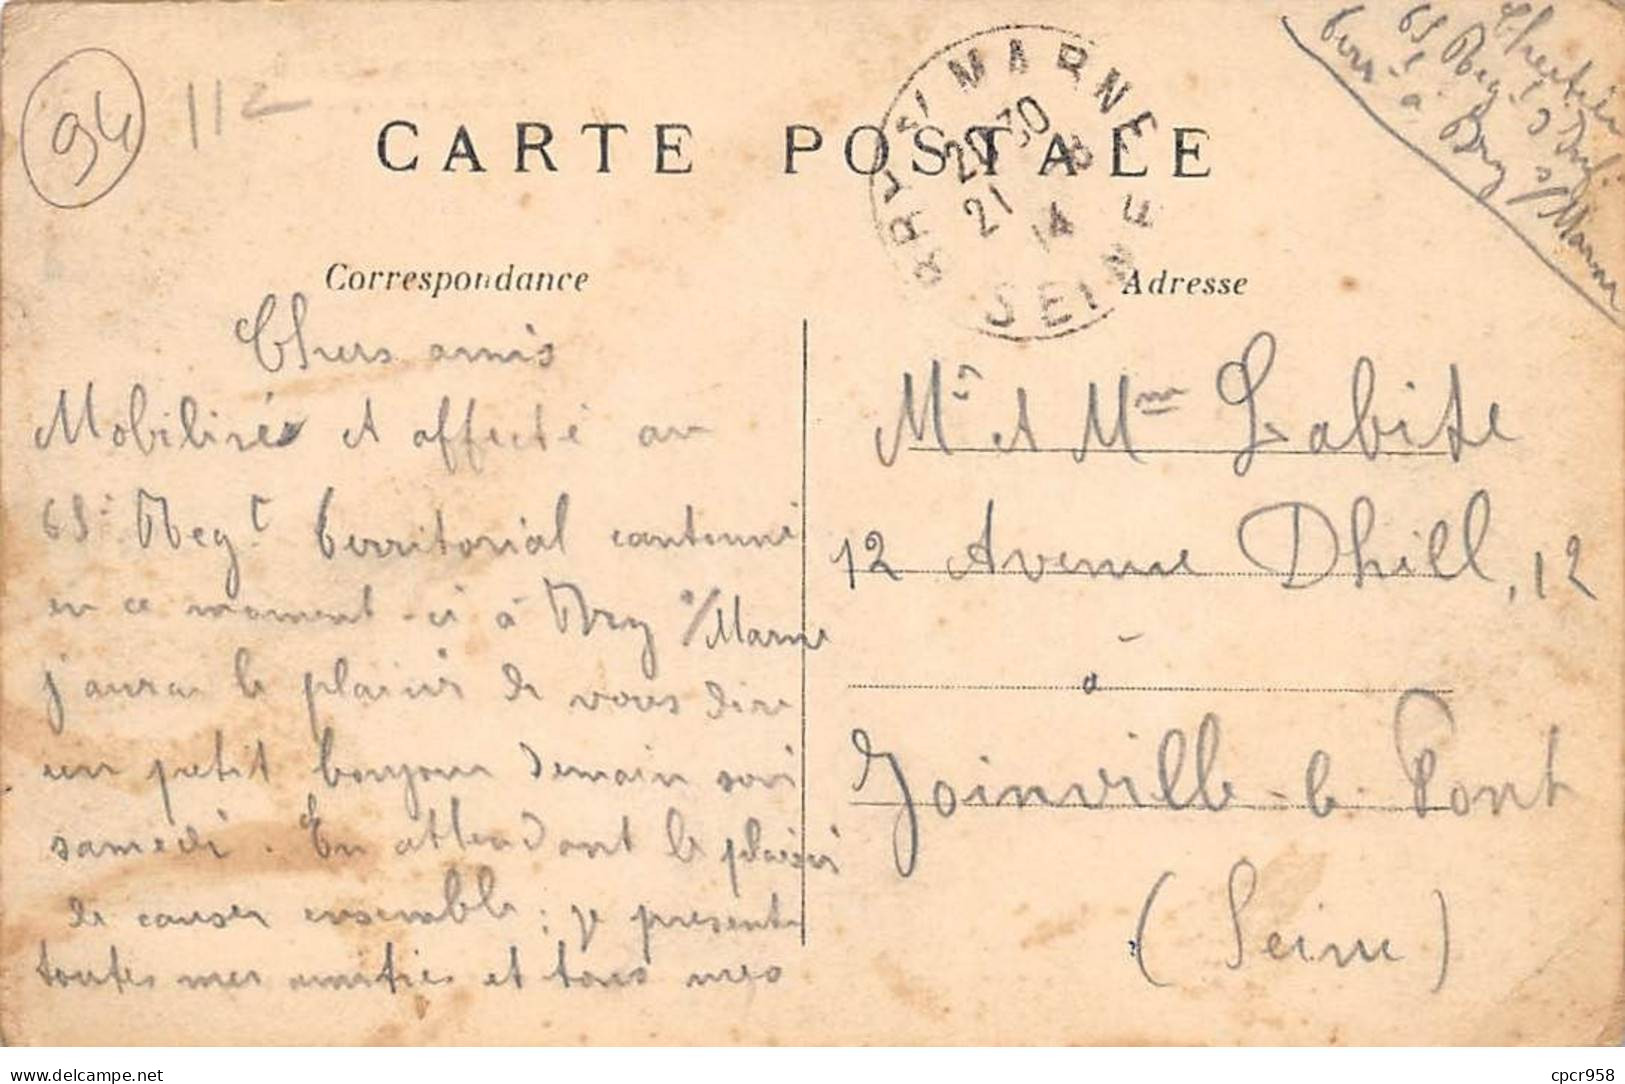 94
112
CARTE POSTALE
BRY-S/-MARNE
20·30
21 -8
14
SEINE
65 Reg
à Bry s/Marne
Correspondance
Adresse
Chers amis
Mobilisé et affecté au
65e Regt Territorial cantonné
en ce moment-ci à Bry s/Marne
j'aurai le plaisir de vous dire
un petit bonjour demain soir
samedi. En attendant le plaisir
de causer ensemble ; je présente
toutes mes amitiés et tous mes
Mr et Mme Labite
12 Avenue Dhill, 12
à
Joinville-le-Pont
(Seine)
cpcr958